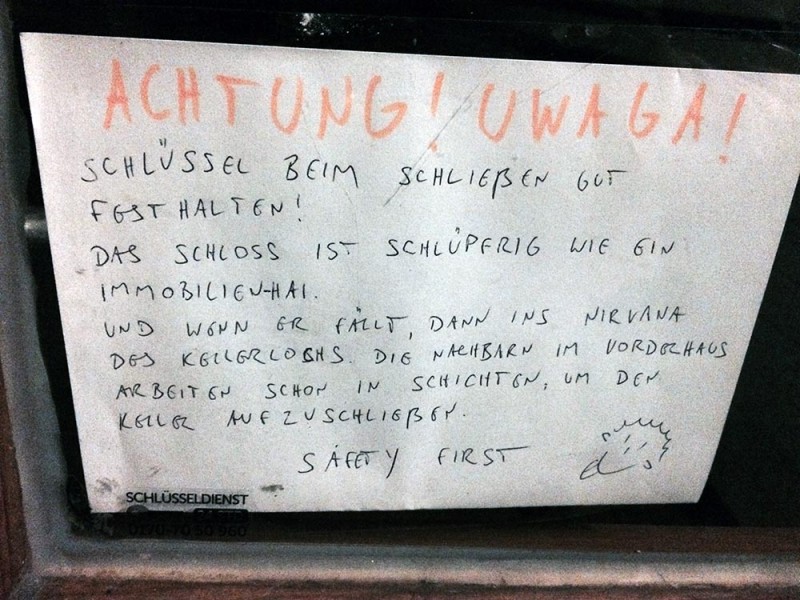 ACHTUNG! UWAGA!
SCHLÜSSEL BEIM SCHLIEßEN GUT
FESTHALTEN!
DAS SCHLOSS IST SCHLÜPERIG WIE EIN
IMMOBILIEN-HAI.
UND WENN ER FÄLLT, DANN INS NIRVANA
DES KELLERLOCHS. DIE NACHBARN IM VORDERHAUS
ARBEITEN SCHON IN SCHICHTEN, UM DEN
KELLER AUFZUSCHLIEßEN.
SAFETY FIRST
SCHLÜSSELDIENST